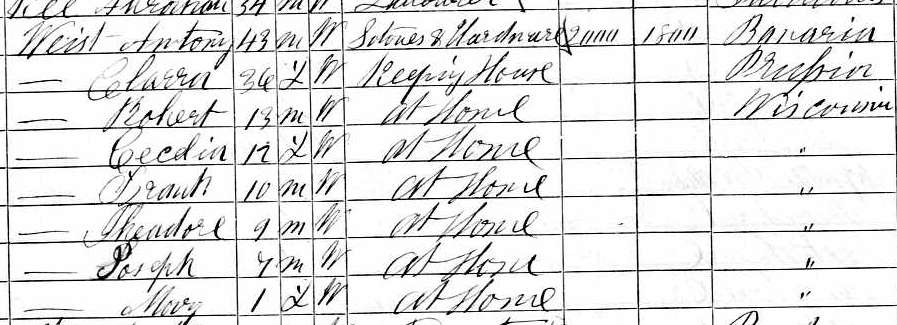 Abraham 34 m W Laborer
Weist Antony 43 m W Stoves & Hardware 2000 1500 Bavaria
— Clarra 36 f W Keeping House Prussia
— Robert 13 m W at Home Wisconsin
— Cecelia 12 f W at Home "
— Frank 10 m W at Home "
— Theadore 9 m W at Home "
— Joseph 7 m W at Home "
— Mary 1 f W at Home "